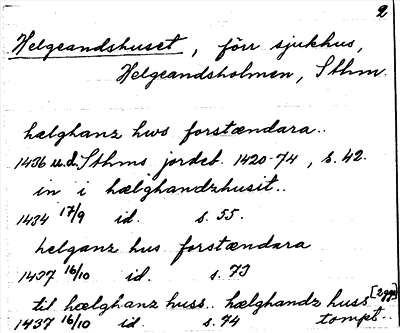 2
Helgeandshuset, förr sjukhus,
Helgeandsholmen, Sthm.
hælghanz hws forstændara..
1436 u.d. Sthms jordeb. 1420-74, s. 42.
in i hælghandzhusit..
1434 17/9 id. s. 55.
helganz hus forstændara
1437 16/10 id. s. 73
til hælghanz huss.. hælghandz huss [2ggr]
1437 16/10 id. s. 74 tompt..